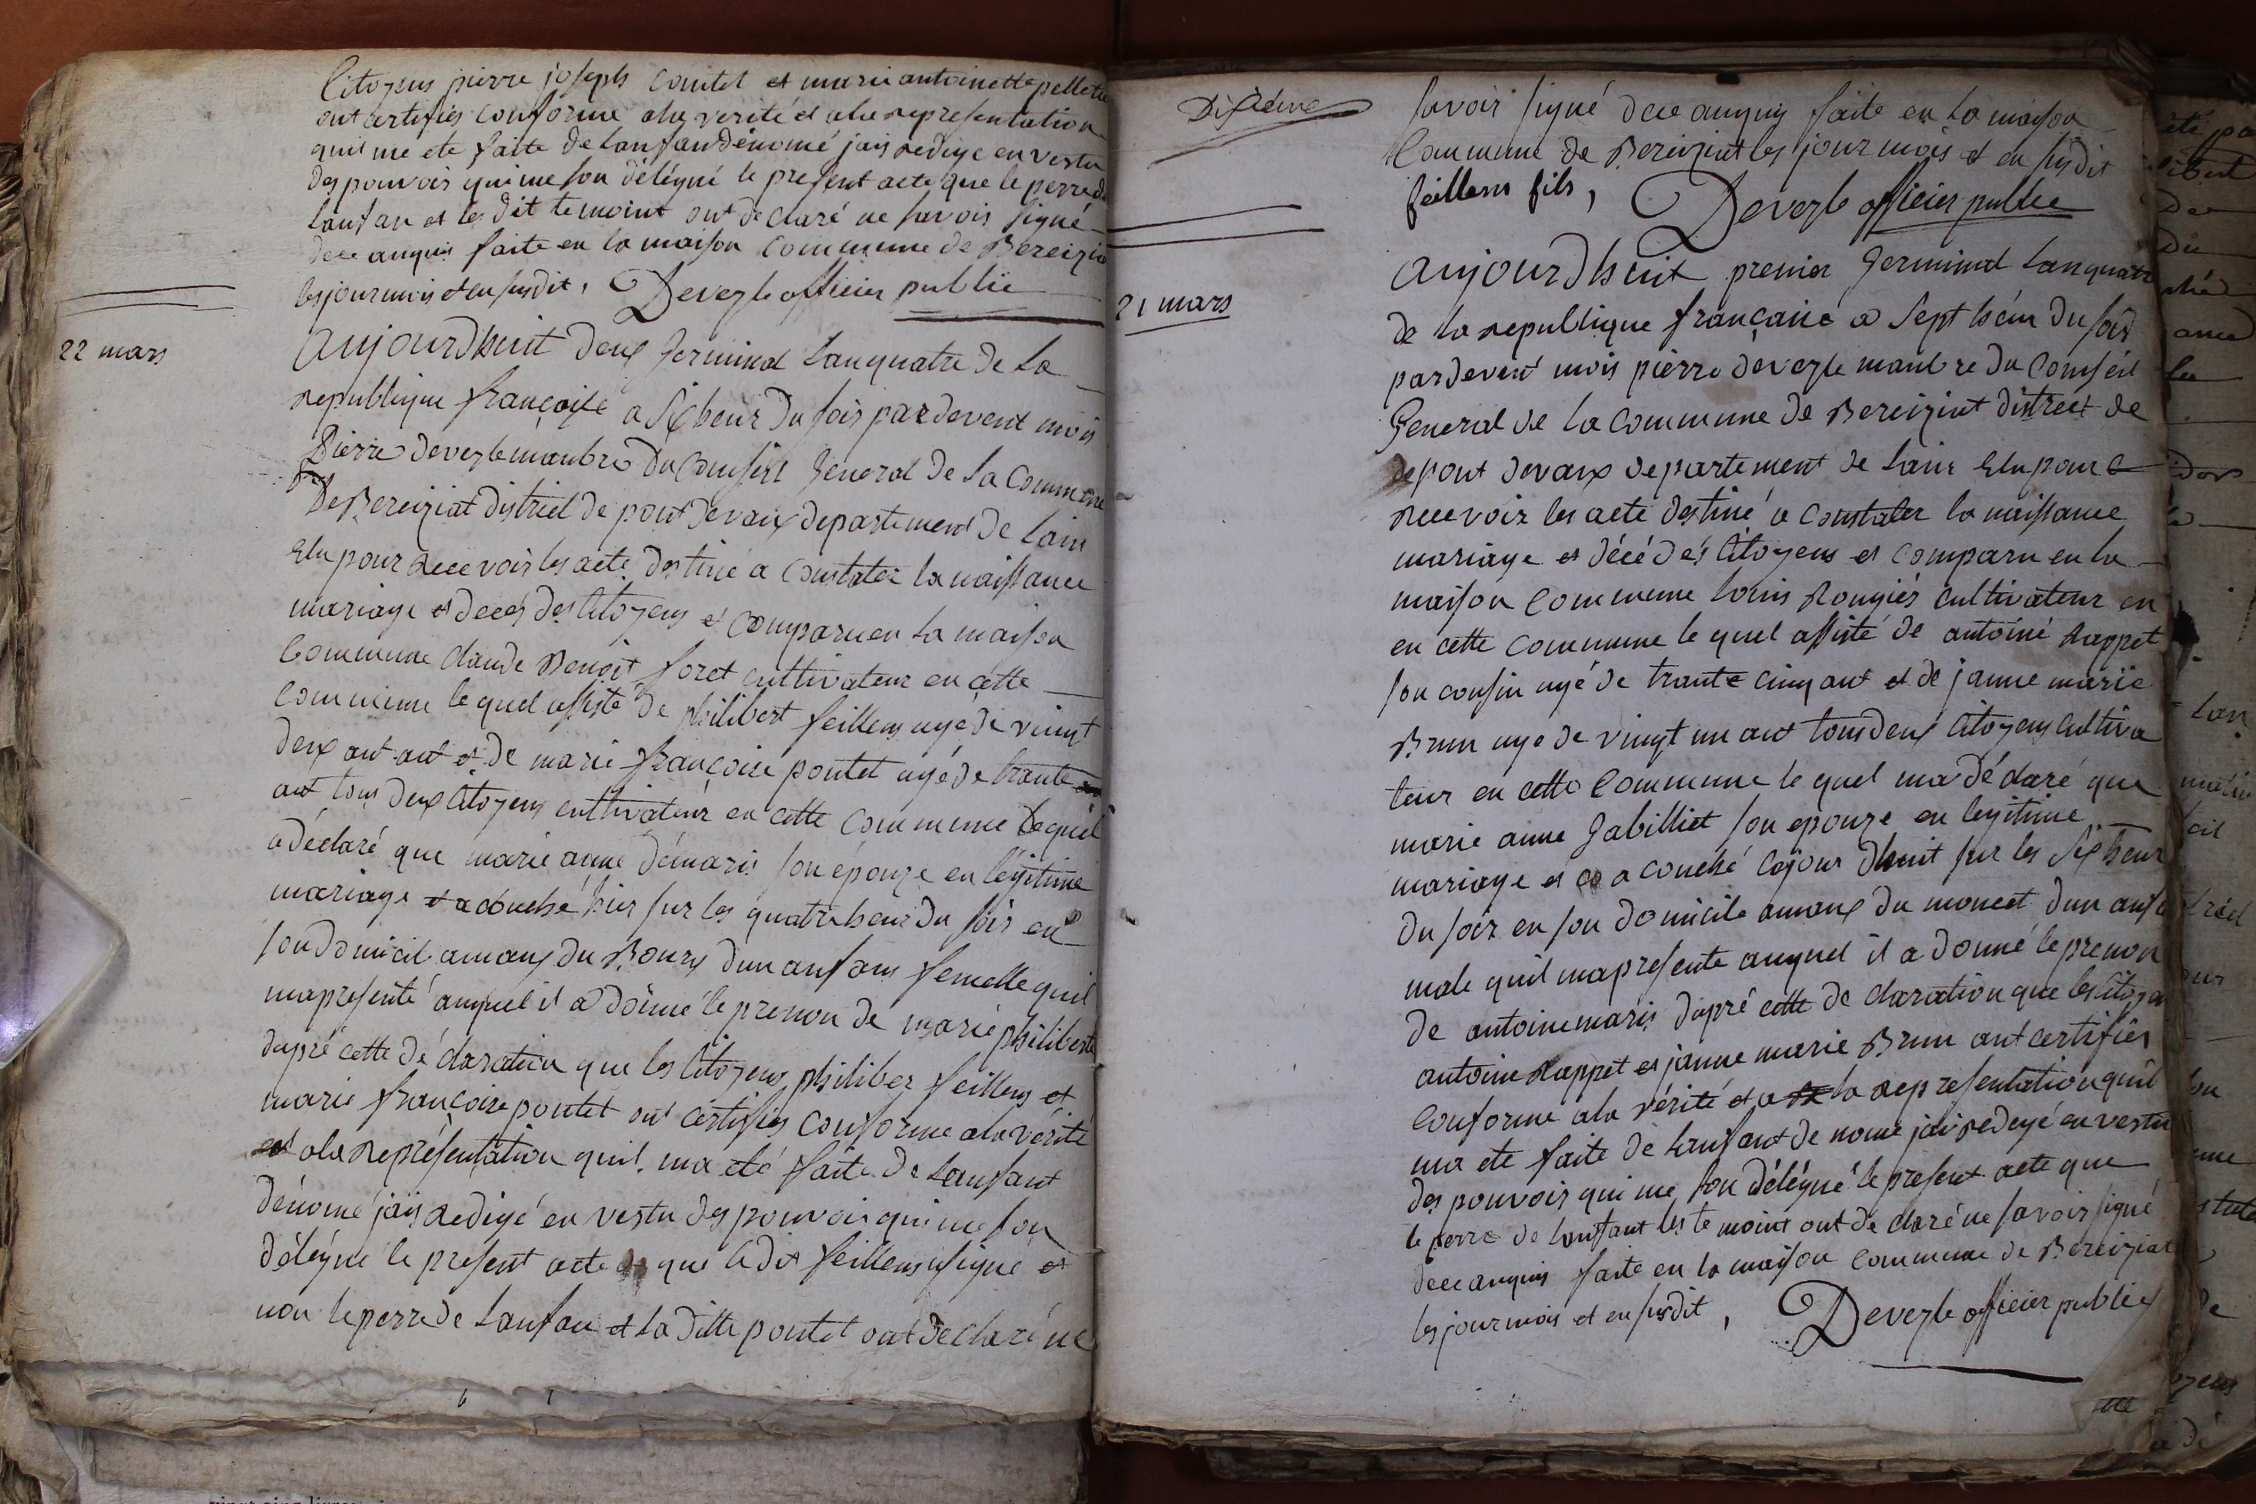 Citoyens pierre joseph Contet et marie antoinette pelletie
ont certifiés conforme ala verité et ala representation
quil me ete faite de lanfan dénomé jais redige en vestu
des pouvois qui me son délégné le present acte que le perre de
lanfan et les dit temoint ont declaré ne savois signé
dece anquis faite en la maison commune de Bereizia
les jour mois et en susdit, Deveyle officier publië
22 mars
aujourdhuit deux Germinal lanquatre de la
republique françoise a six heur du sois pardevent mois
Pierre deveyle manbre du Conseil General de la Commune
De Bereiziat district de pont devaux departement de lain
Elu pour recevois les acte destiné a constater la naissance
mariage et decés des Citoyens et comparu en la maison
Commune claude Benoit foret cultivateur en cette
commune le quel assisté de philibert feillens agé de vingt
deux ant ant et de marie françoise pontet agé de trante
ant tous deux Citoyens cultivateur en cette commune lequel
a déclaré que marie anne démaris son épouze en légitime
mariage et a couché hier sur les quatre heur du sois en
son domicil amaux du Bourg dun anfans femelle quil
mapresenté auquel il a donné le prenon de marie philiberte
dapré cette dé claration que les Citoyens philiber feillens et
marie françoise pontet ont certifiés conforme ala vérité
et ala représentation quil ma été faite de lanfant
dénomé jais redigé en vestu des pouvois qui me son
délégné le present acte que le dit feillens a signé et
non le perre de lanfan et la ditte pontet ont declaré ne
Dixiéme
savoir signé dece anquis faite en la maison
Commune de Bereiziat les jour mois et en susdit
feillens fils, Deveyle officier publie
21 mars
aujourdhuit premier Germinal lanquatre
de la republique françaisé a Sept héur du sois
pardevent mois pierre deveyle manbre du Conséil
General de la Commune de Bereiziat district de
de pont devaux departement de lain Elu pour
recevoir les acte destiné a constater la naissance
mariage et décé dés Citoyens et comparu en la
maison commune louis Rongiés cultivateur en
en cette commune le quel assisté de antoiné Rappet
son cousin agé de trante cinq ant et de janne marie
Brun age de vingt un ant tous deux Citoyens cultiva
teur en cette commune le quel ma déclaré que
marie anne Jabilliet son epouze en legitime
mariage et a couché cejour dhuit sur les six heur
du soir en son domicile amaux du moncet dun anfa
male quil mapresente auquel il a donné le prenon
de antoine maris dapré cette de claration que les Citoyen
antoine Rappet et janne marie Brun ant certifiés
conforme ala vérité et a la representation quil
ma ete faite de lanfant de nomé jais redegé en vestu
des pouvois qui me son délégné le present acte que
le perre de lanfant les te moint ont de claré ne savois signé
dece anquis faite en la maison commune de Bereiziat
les jour mois et en susdit, Deveyle officier publie